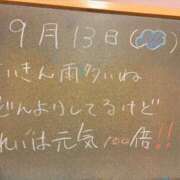 9月13日( )
いきん雨多いね
どんよりしてるけど
れいは元気100倍!!